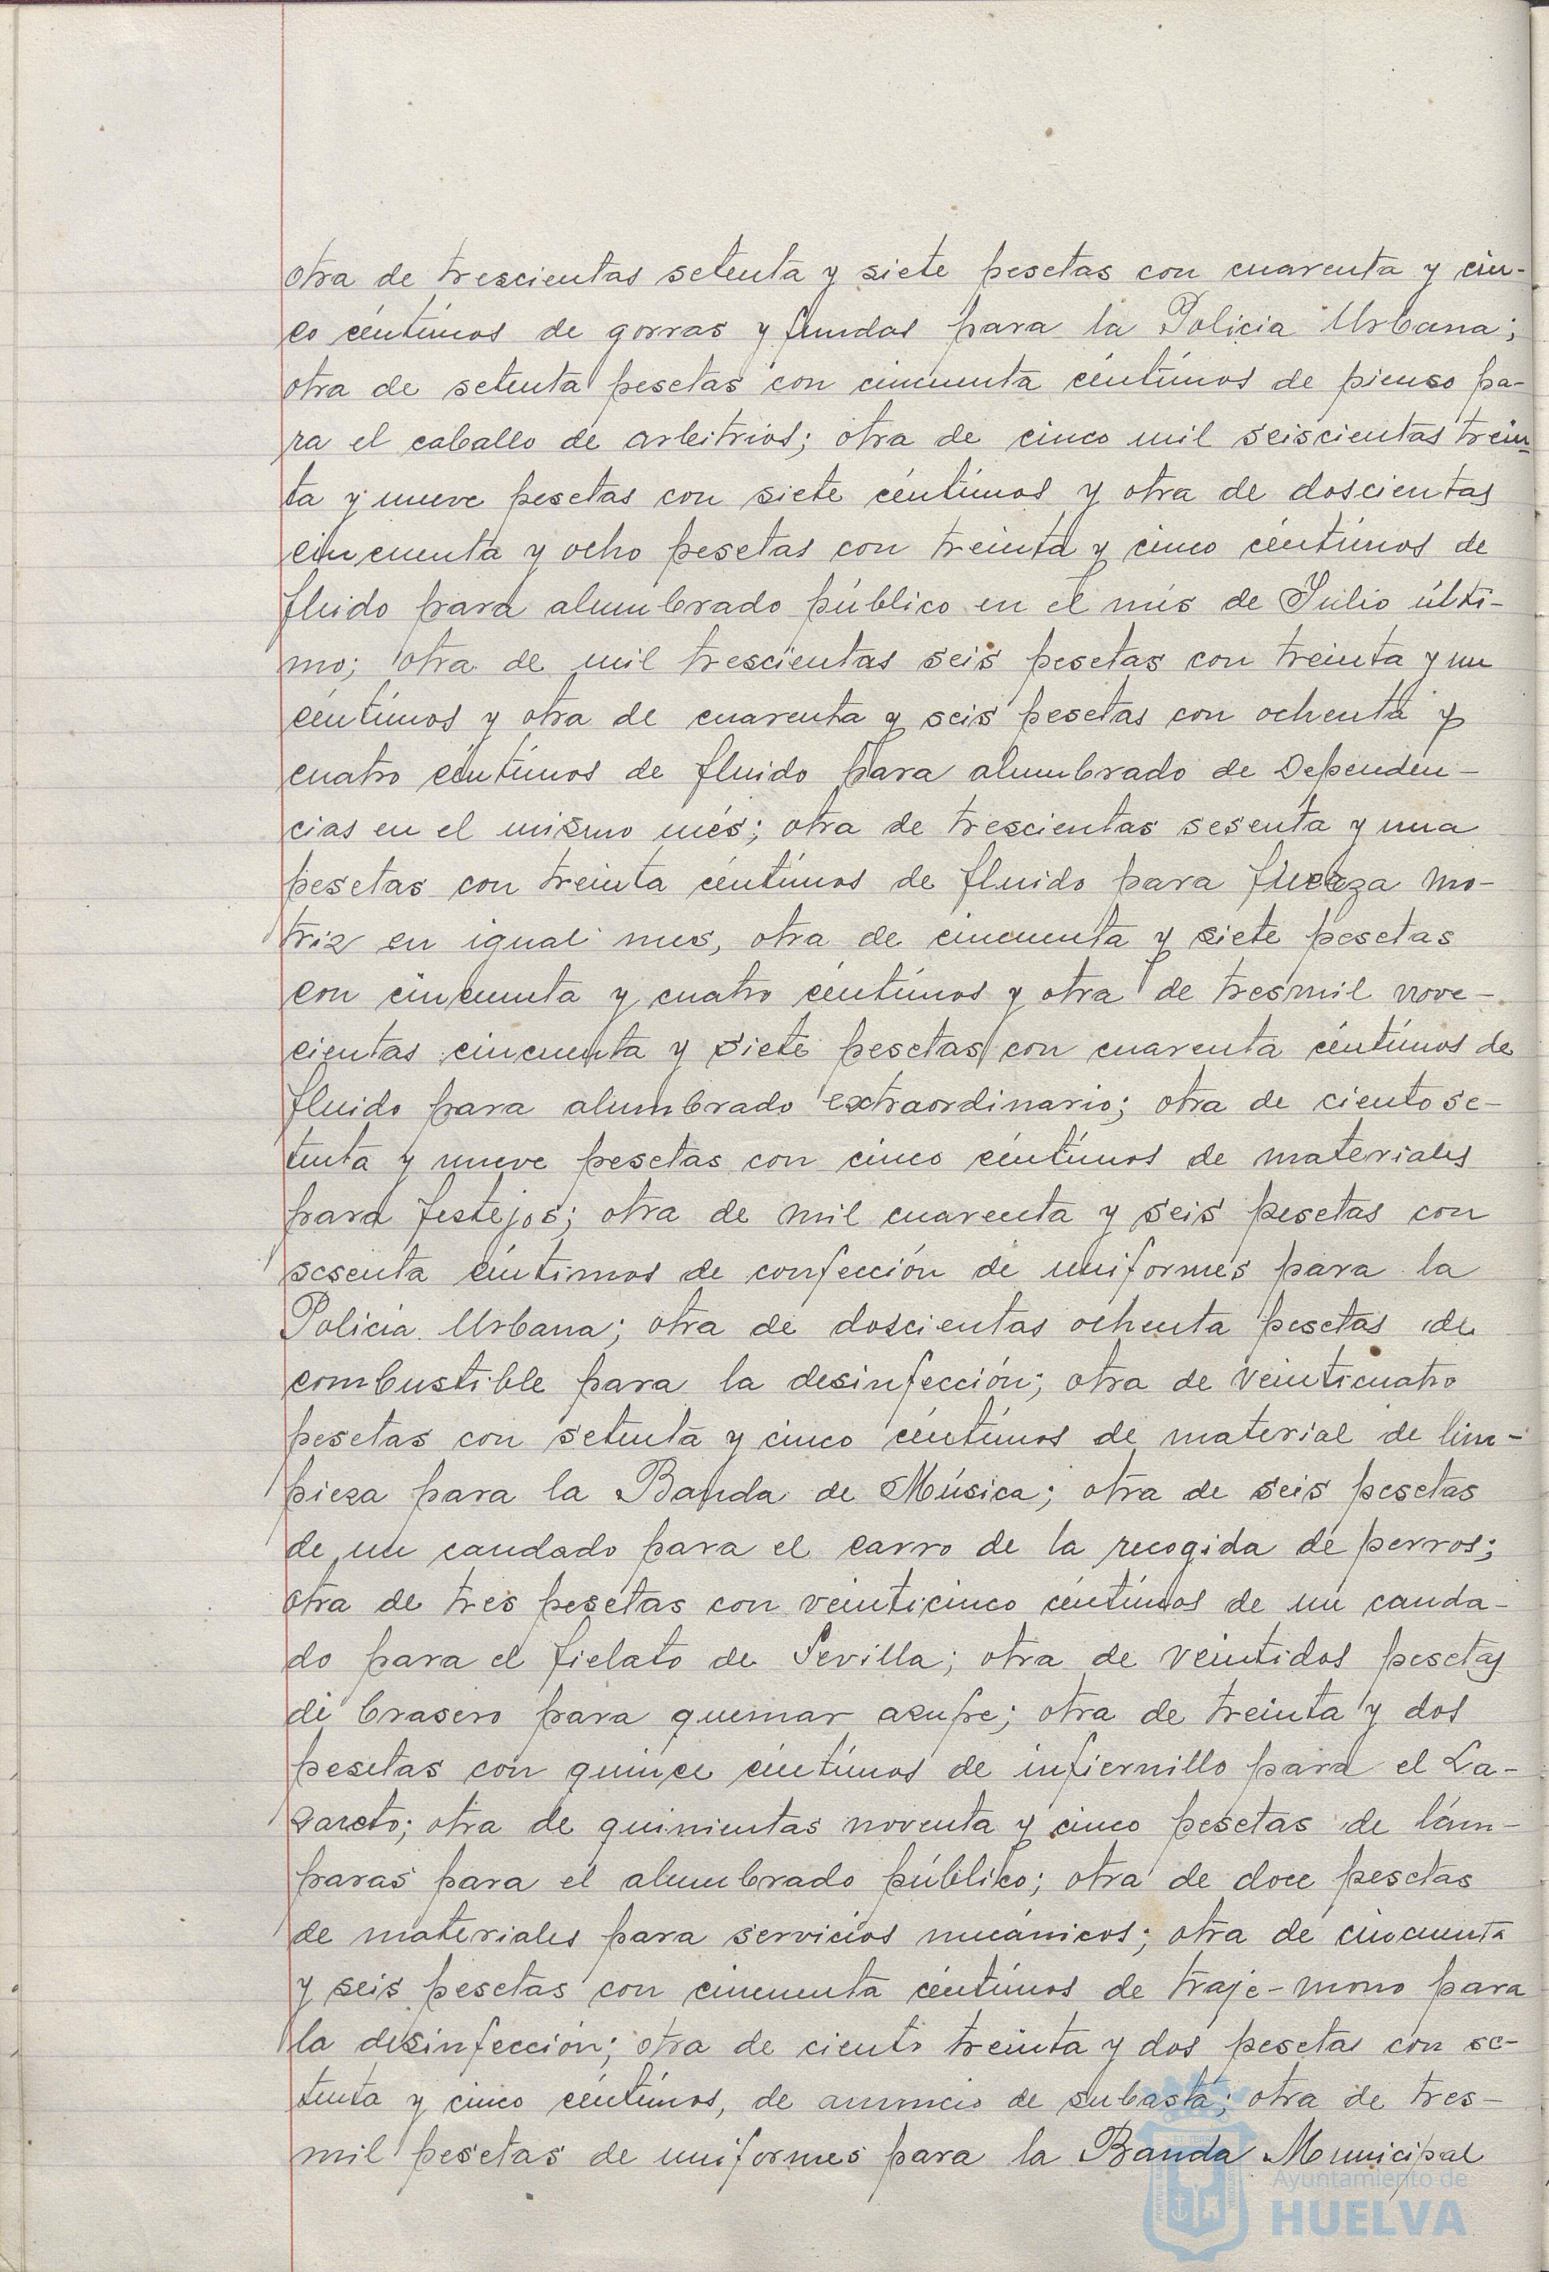 otra de trescientas setenta y siete pesetas con cuarenta y cin-
co céntimos de gorras y fundas para la Policia Urbana;
otra de setenta pesetas con cincuenta céntimos de pienso pa-
ra el caballo de arbitrios; otra de cinco mil seiscientas trein-
ta y nueve pesetas con siete céntimos y otra de doscientas
cincuenta y ocho pesetas con treinta y cinco céntimos de
fluido para alumbrado público en el més de Julio últi-
mo; otra de mil trescientas seis pesetas con treinta y un
céntimos y otra de cuarenta y seis pesetas con ochenta y
cuatro céntimos de fluido para alumbrado de Dependen-
cias en el mismo més; otra de trescientas sesenta y una
pesetas con treinta céntimos de fluido para fuerza mo-
triz en igual mes, otra de cincuenta y siete pesetas
con cincuenta y cuatro céntimos y otra de tresmil nove-
cientas cincuenta y siete pesetas con cuarenta céntimos de
fluido para alumbrado extraordinario; otra de ciento se-
tenta y nueve pesetas con cinco céntimos de materiales
para festejos; otra de mil cuarenta y seis pesetas con
sesenta céntimos de confección de uniformes para la
Policia Urbana; otra de doscientas ochenta pesetas de
combustible para la desinfección; otra de veinticuatro
pesetas con setenta y cinco céntimos de material de lim-
pieza para la Banda de Música; otra de seis pesetas
de un candado para el carro de la recogida de perros;
otra de tres pesetas con veinticinco céntimos de un canda-
do para el fielato de Sevilla; otra de veintidos pesetas
de brasero para quemar azufre; otra de treinta y dos
pesetas con quince céntimos de infiernillo para el La-
zareto; otra de quinientas noventa y cinco pesetas de lám-
paras para el alumbrado público; otra de doce pesetas
de materiales para servicios mecánicos; otra de cincuenta
y seis pesetas con cincuenta céntimos de traje-mono para
la desinfección; otra de ciento treinta y dos pesetas con se-
tenta y cinco céntimos, de anuncio de subasta; otra de tres-
mil pesetas de uniformes para la Banda Municipal
Ayuntamiento de
HUELVA